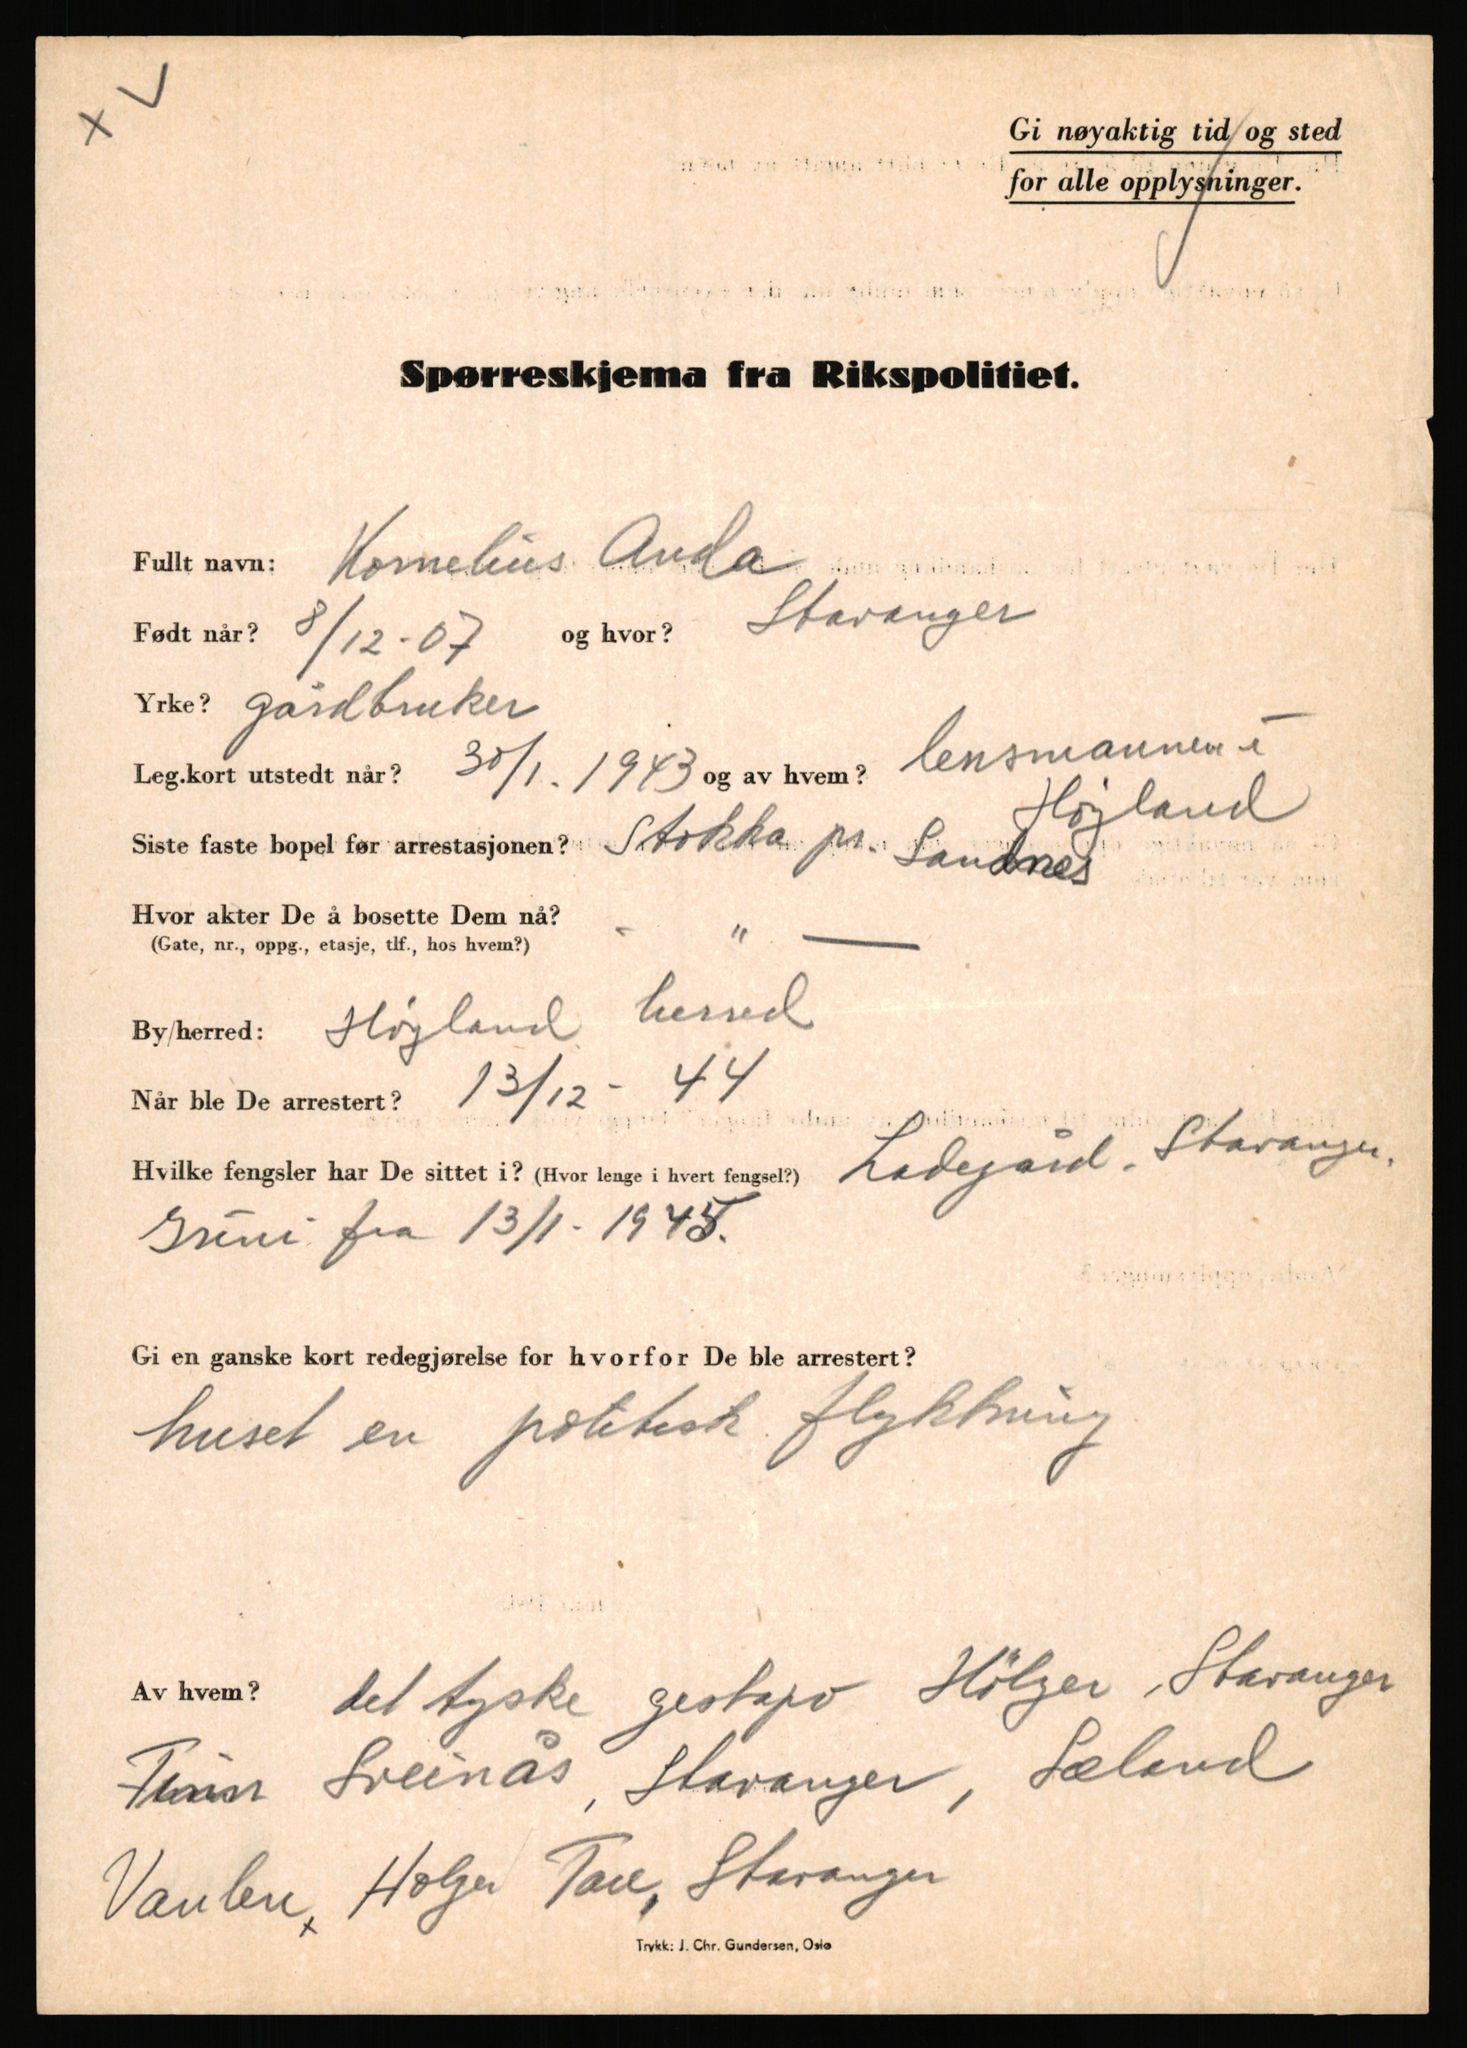 Gi nøyaktig tid og sted
for alle opplysninger.
Spørreskjema fra Rikspolitiet.
Fullt navn: Kornelius Anda
Født når? 8/12-07 og hvor? Stavanger
Yrke? gårdbruker
Leg.kort utstedt når? 30/1. 1943 og av hvem? lensmannen i
Høyland
Siste faste bopel før arrestasjonen? Stokka pr. Sandnes
Hvor akter De å bosette Dem nå? - " —
(Gate, nr., oppg., etasje, tlf., hos hvem?)
By/herred: Høyland herred
Når ble De arrestert? 13/12 - 44
Hvilke fengsler har De sittet i? (Hvor lenge i hvert fengsel?) Ladegård. Stavanger.
Grini fra 13/1. 1945.
Gi en ganske kort redegjørelse for hvorfor De ble arrestert?
huset en politisk flyktning
Av hvem? det tyske gestapo Hölger, Stavanger
Finn Sveinås, Stavanger, Sæland
Vaulen, Holger Tou, Stavanger
Trykk: J. Chr. Gundersen, Oslo